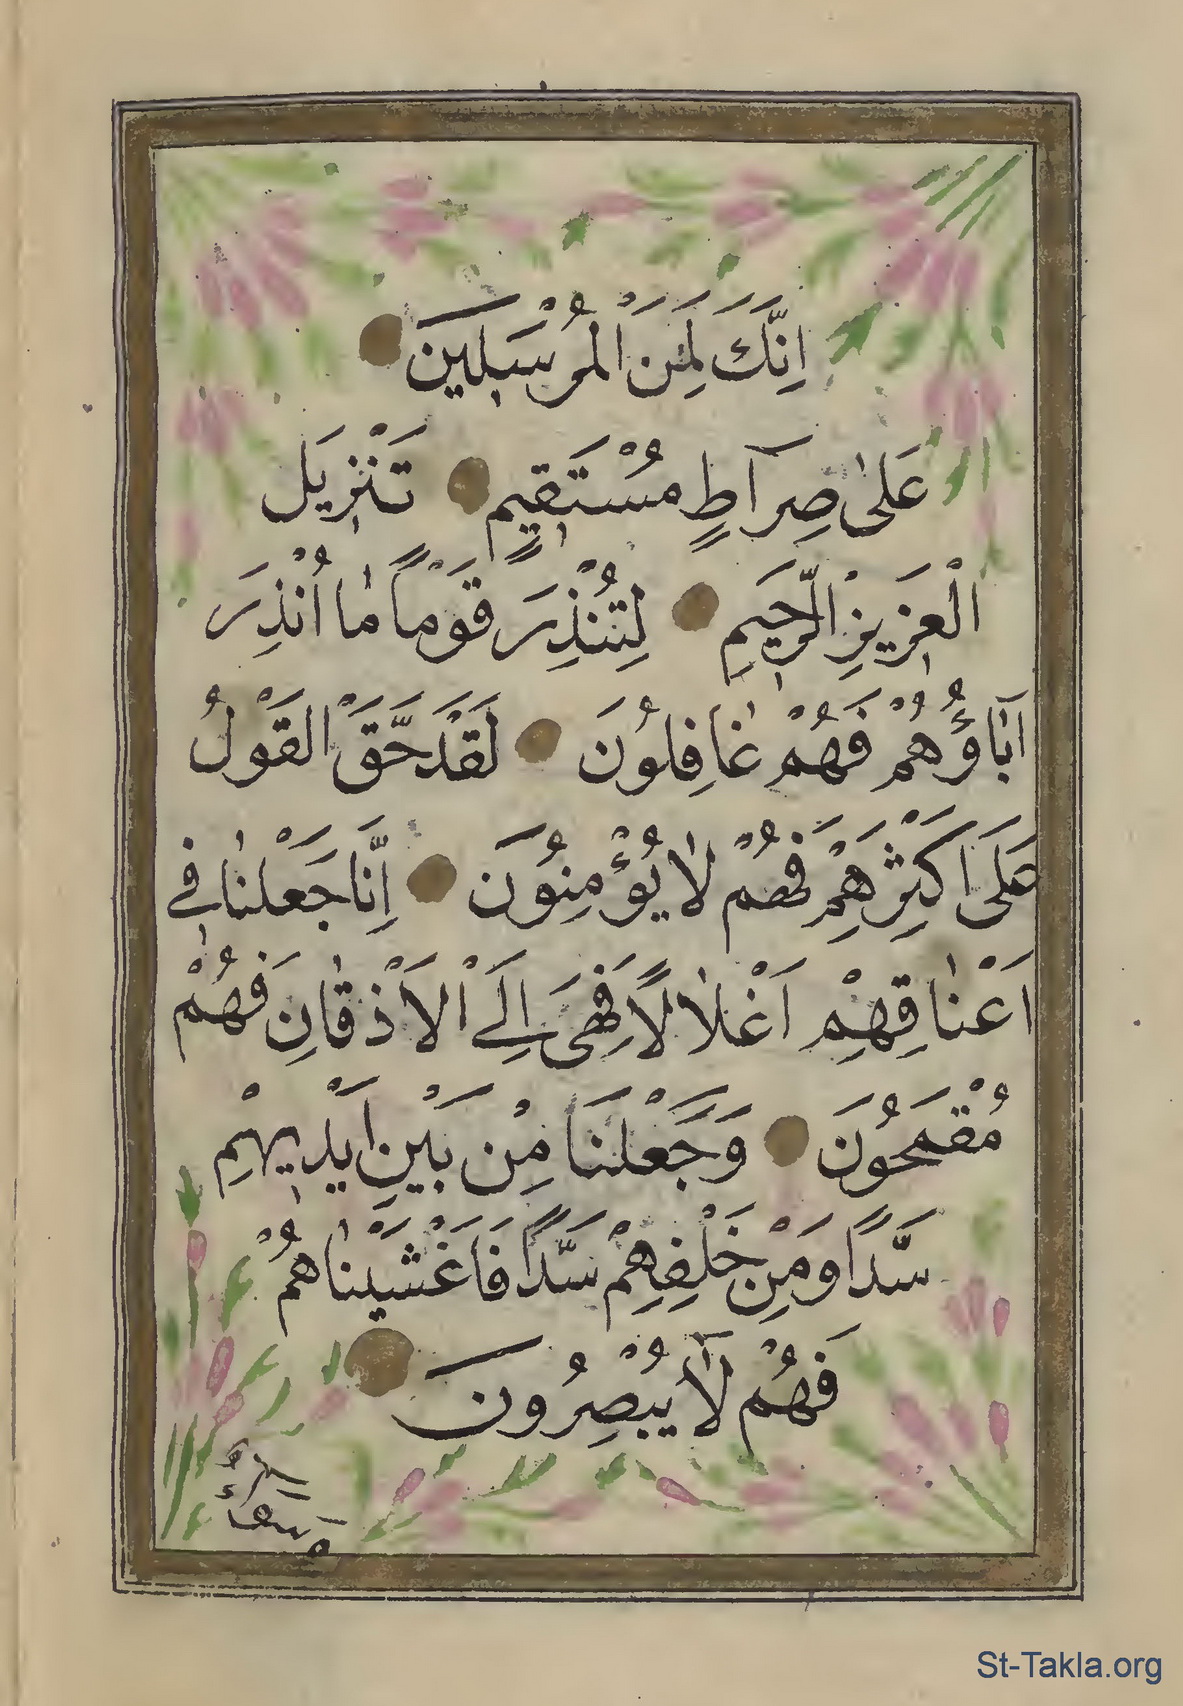 اِنَّكَ لَمِنَ الْمُرْسَلِينَ
عَلٰى صِرَاطٍ مُسْتَقِيمٍ تَنْزِيلَ
الْعَزِيزِ الرَّحِيمِ لِتُنْذِرَ قَوْمًا مٰا اُنْذِرَ
اٰبٰاؤُهُمْ فَهُمْ غٰافِلُونَ لَقَدْ حَقَّ الْقَوْلُ
عَلَى اَكْثَرِهِمْ فَهُمْ لٰا يُؤْمِنُونَ اِنَّا جَعَلْنٰا فِي
اَعْنٰاقِهِمْ اَغْلٰالًا فَهِيَ اِلَى الْاَذْقٰانِ فَهُمْ
مُقْمَحُونَ وَجَعَلْنَا مِنْ بَيْنِ اَيْدِيهِمْ
سَدًّا وَمِنْ خَلْفِهِمْ سَدًّا فَاَغْشَيْنٰاهُمْ
فَهُمْ لٰا يُبْصِرُونَ
St-Takla.org